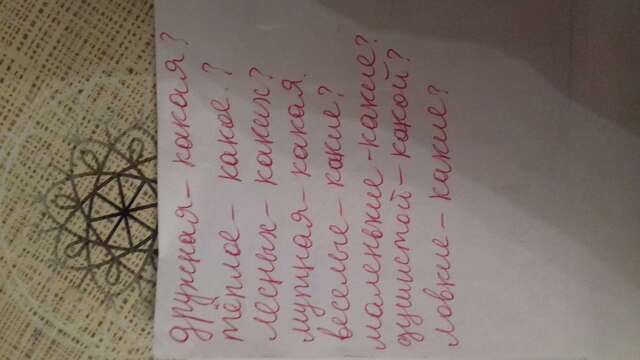 дружная - какая?
тёплое - какое?
лесных - каких?
мутная - какая?
веселые - какие?
маленькие - какие?
душистой - какой?
ловкие - какие?